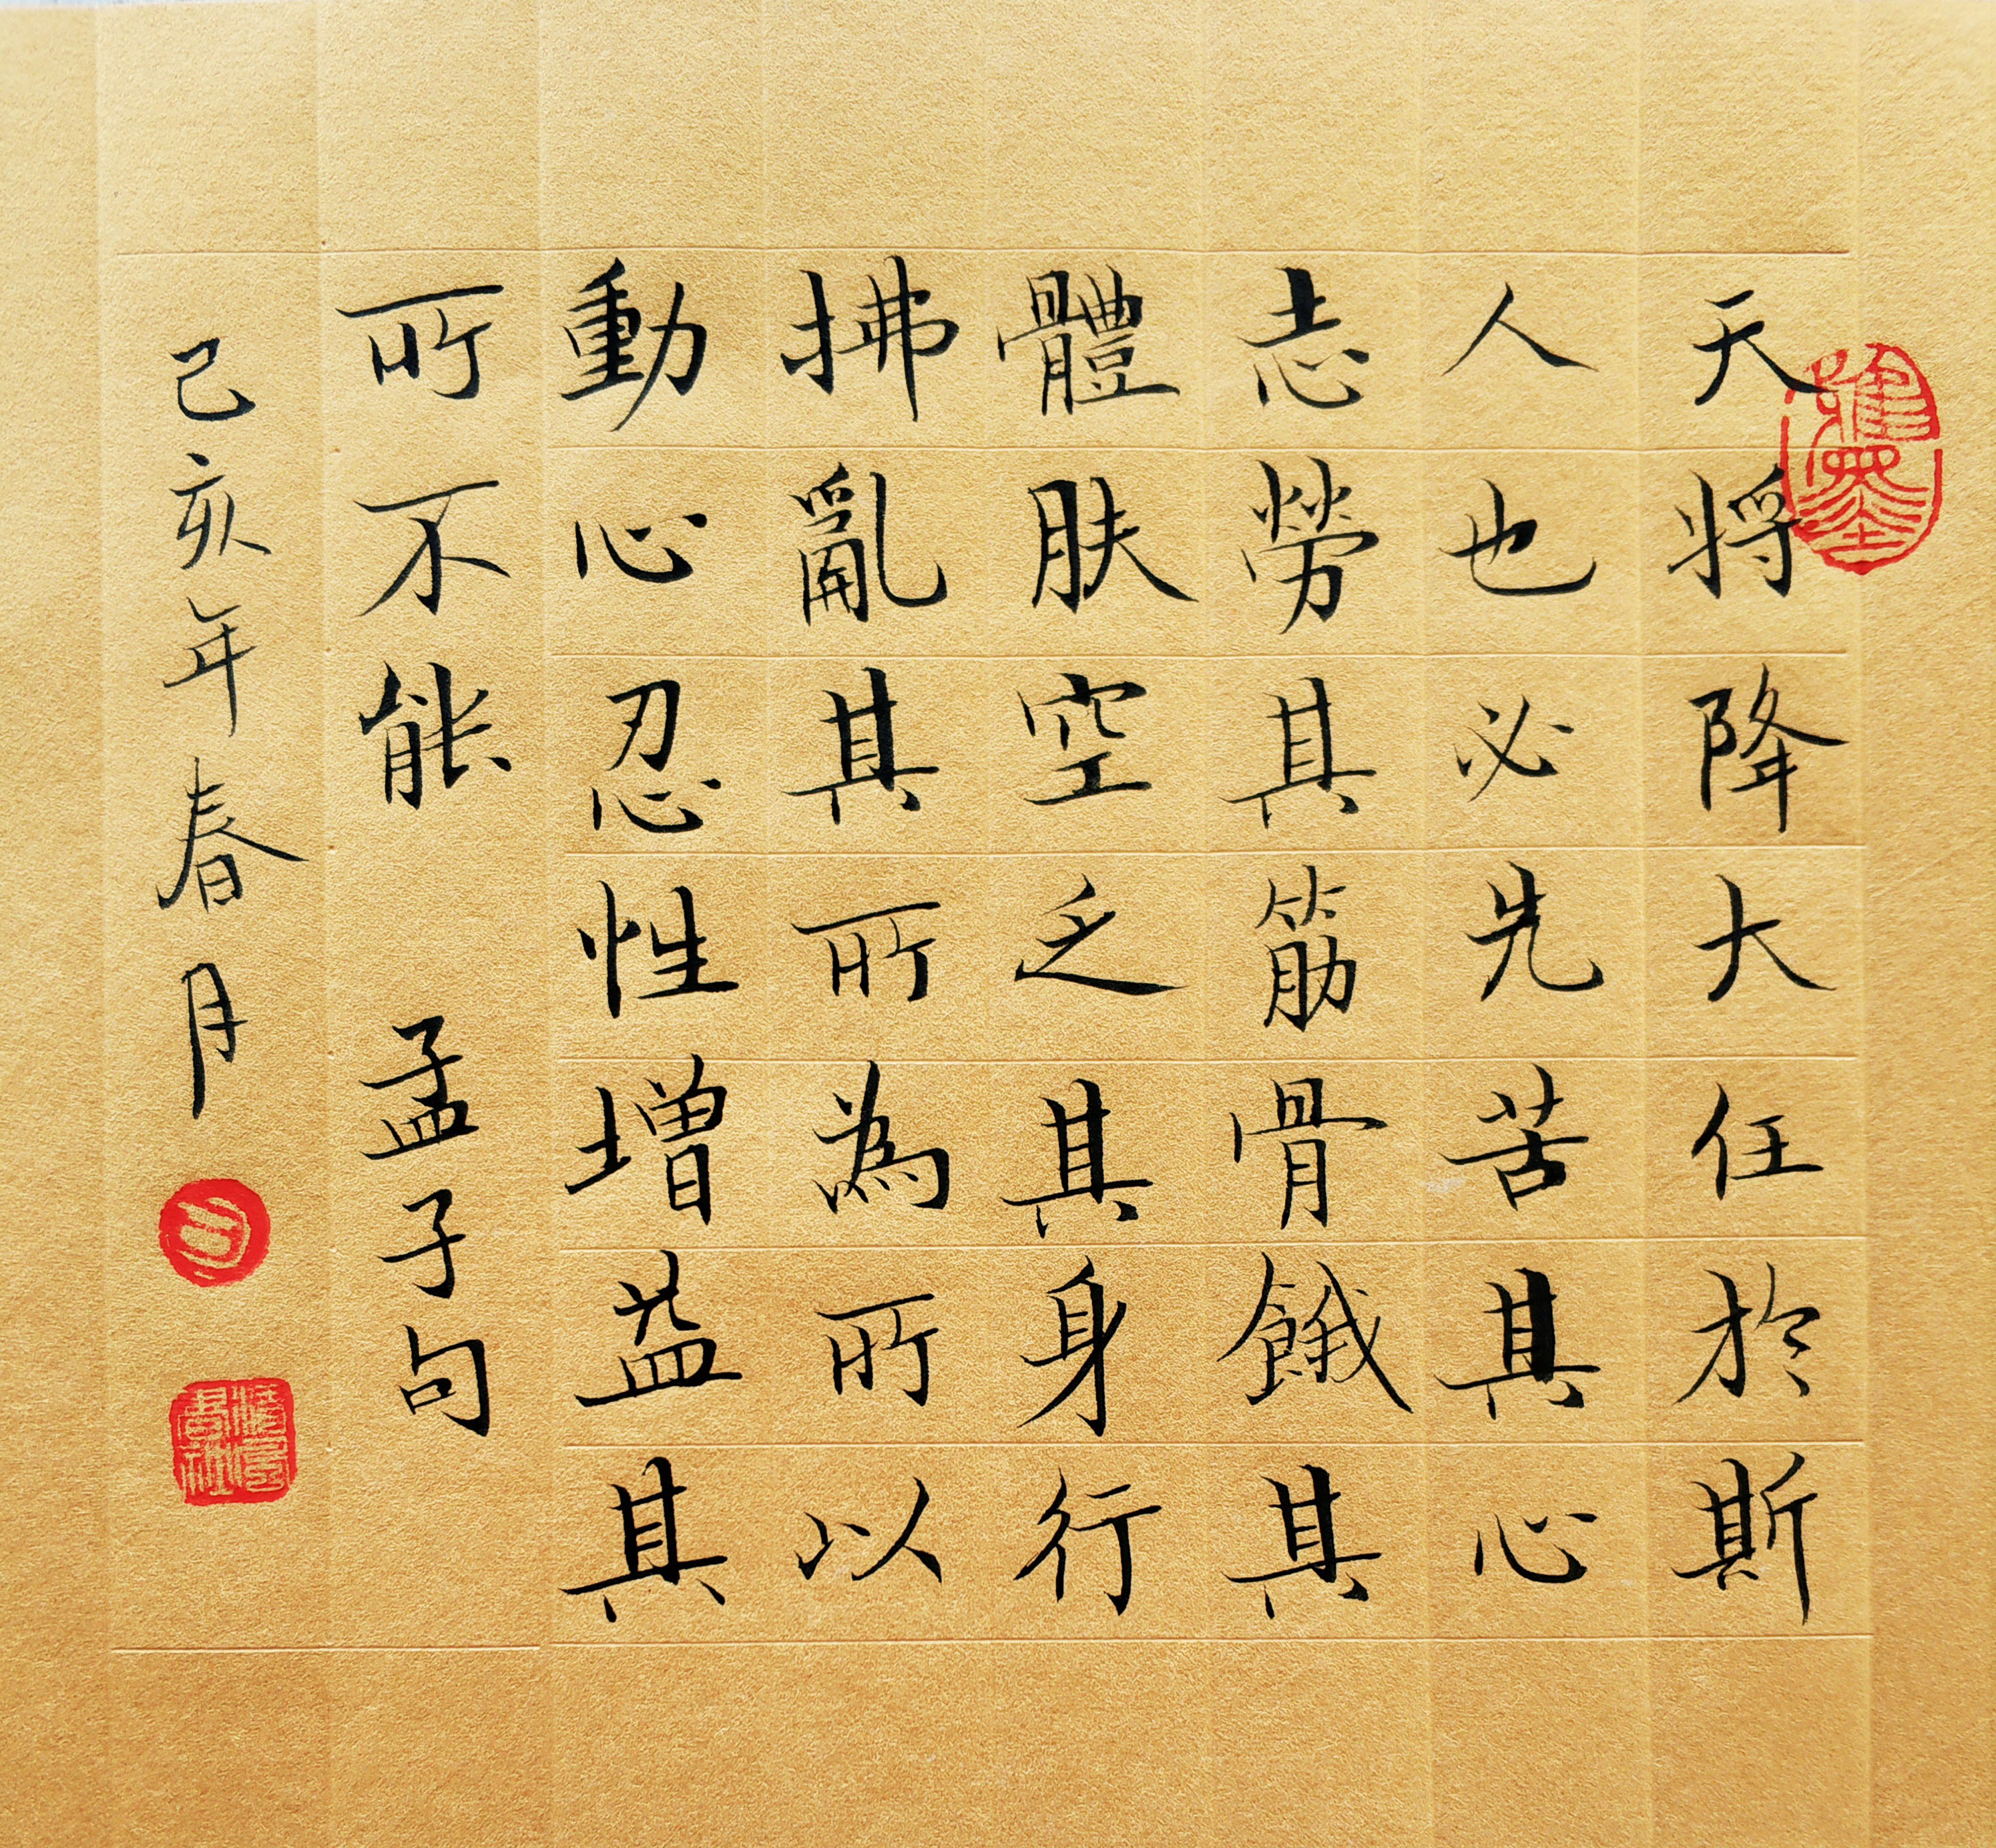 天将降大任於斯
人也必先苦其心
志勞其筋骨餓其
體肤空乏其身行
拂亂其所為所以
動心忍性增益其
所不能 孟子句
己亥年春月